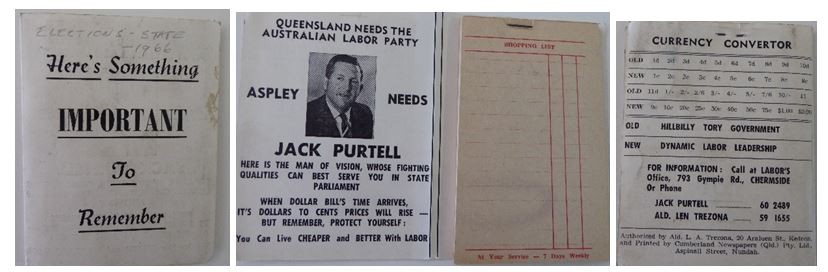 ELECTIONS - STATE
- 1966
Here's Something
IMPORTANT
To
Remember
QUEENSLAND NEEDS THE
AUSTRALIAN LABOR PARTY
ASPLEY NEEDS
JACK PURTELL
HERE IS THE MAN OF VISION, WHOSE FIGHTING
QUALITIES CAN BEST SERVE YOU IN STATE
PARLIAMENT
WHEN DOLLAR BILL'S TIME ARRIVES,
IT'S DOLLARS TO CENTS PRICES WILL RISE —
BUT REMEMBER, PROTECT YOURSELF:
You Can Live CHEAPER and BETTER With LABOR
SHOPPING LIST
At Your Service — 7 Days Weekly
CURRENCY CONVERTOR
OLD 1d 2d 3d 4d 5d 6d 7d 8d 9d 10d
NEW 1c 2c 2c 3c 4c 5c 6c 7c 8c 8c
OLD 11d 1/- 2/- 2/6 3/- 4/- 5/- 7/6 10/- £1
NEW 9c 10c 20c 25c 30c 40c 50c 75c $1.00 $2.00
OLD HILLBILLY TORY GOVERNMENT
NEW DYNAMIC LABOR LEADERSHIP
FOR INFORMATION: Call at LABOR'S
Office, 793 Gympie Rd., CHERMSIDE
Or Phone
JACK PURTELL 60 2489
ALD. LEN TREZONA 59 1655
Authorised by Ald. L. A. Trezona, 20 Araluen St., Kedron,
and Printed by Cumberland Newspapers (Qld.) Pty. Ltd.
Aspinall Street, Nundah.